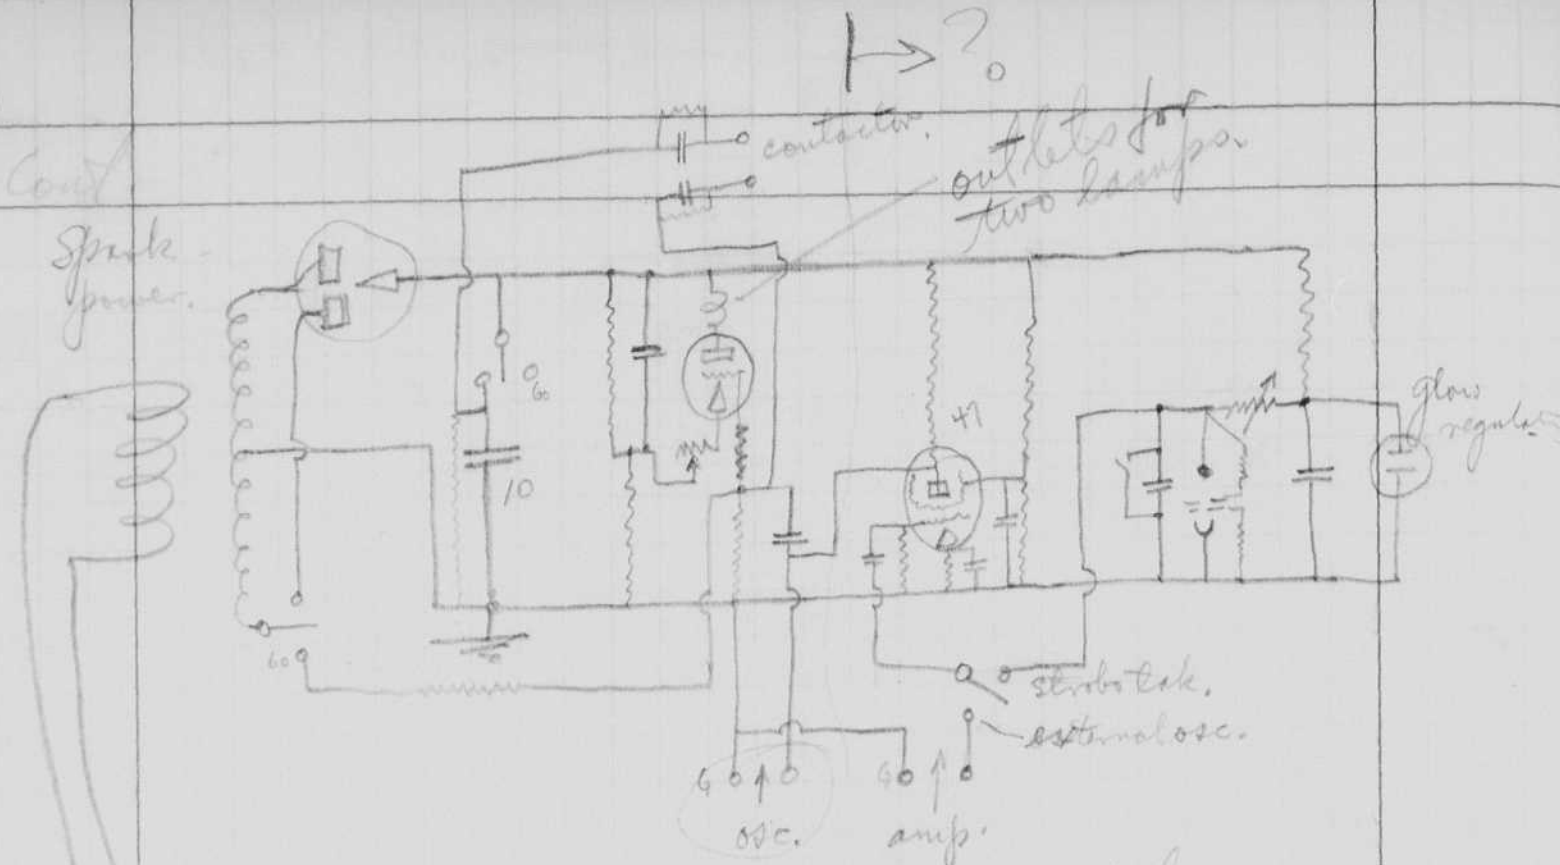 ?
contactor.
outlets for
two lamps.
Cont
Spark
power.
60
10
47
glow
regulator
60
strobotak.
external osc.
G
G
osc.
amp.